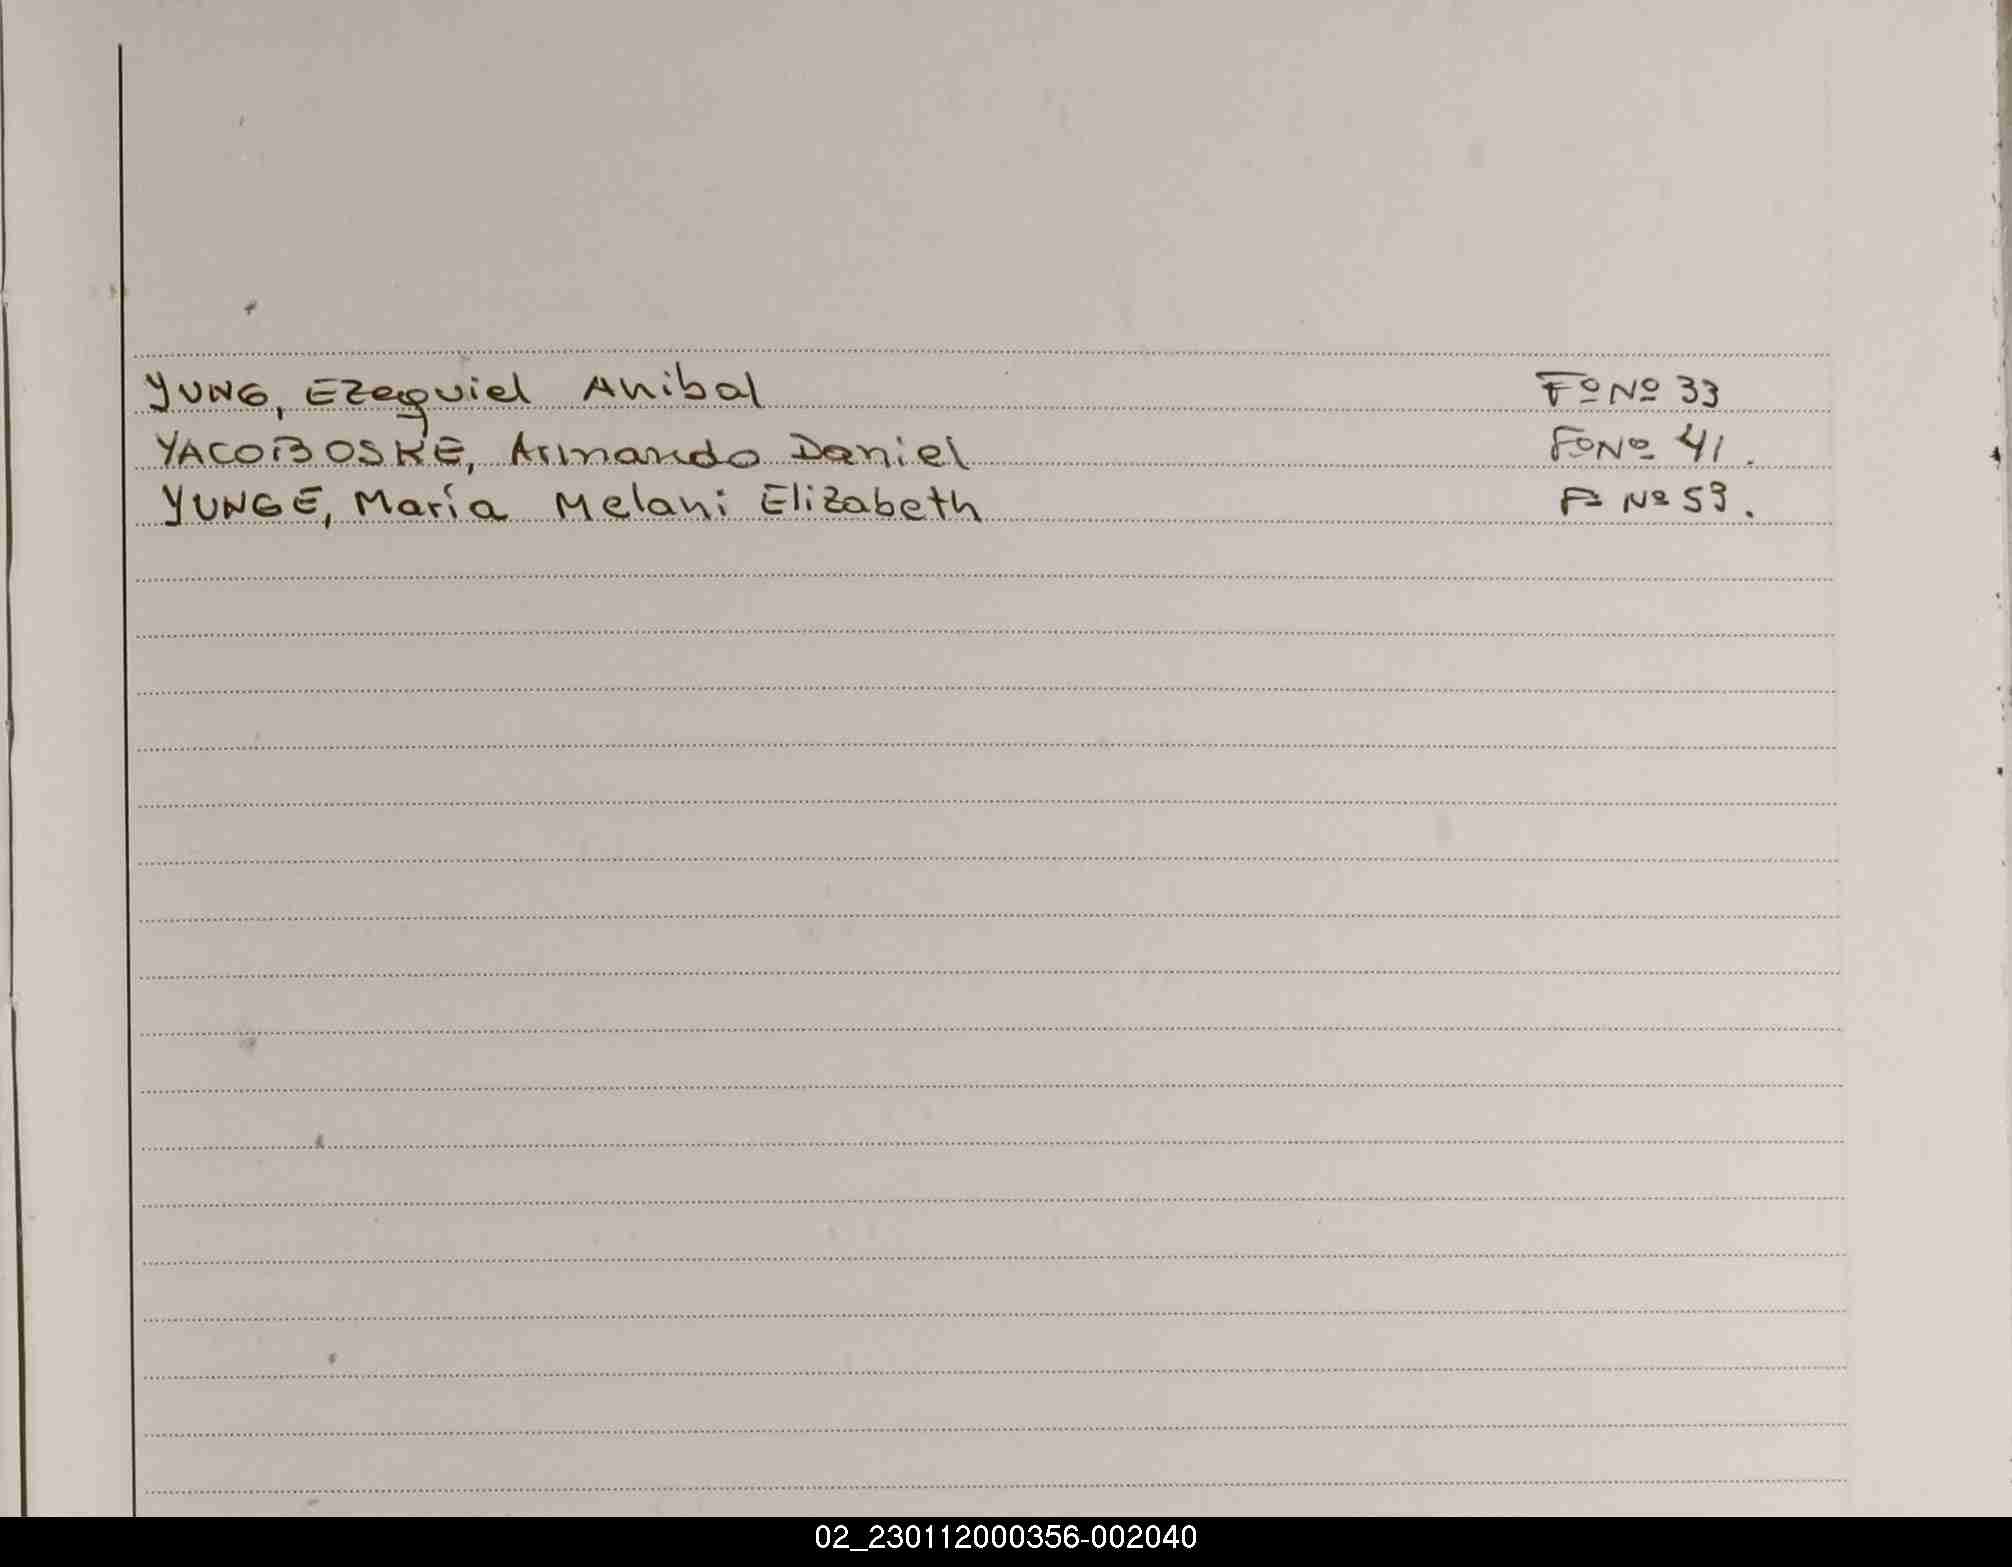 YUNG, Ezequiel Anibal Fº Nº 33
YACOBOSKE, Armando Daniel Fº Nº 41.
YUNGE, María Melani Elizabeth Fº Nº 53.
02_230112000356-002040